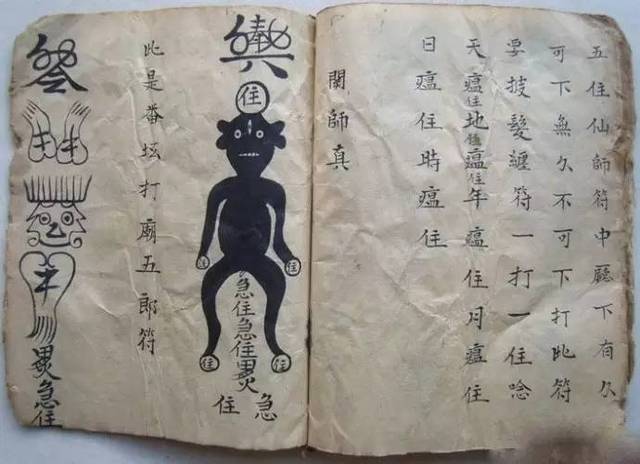 五住仙師符中廳下有久
可下無久不可下打此符
要披髮纏符一打一住唸
天瘟住地瘟住年瘟住月瘟住
日瘟住時瘟住
師真
住
住
住
急住急住
住
住
急
住
此是番坛打廟五郎符
急住